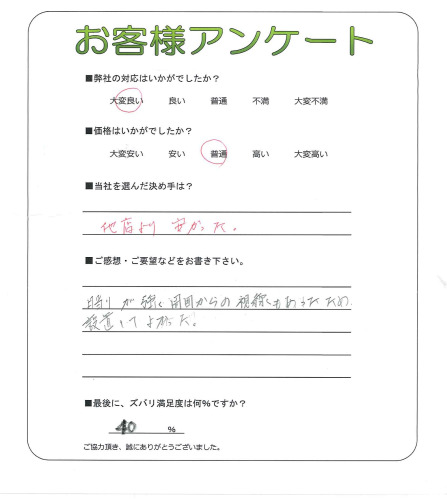 お客様アンケート
■弊社の対応はいかがでしたか?
大変良い 良い 普通 不満 大変不満
■価格はいかがでしたか?
大変安い 安い 普通 高い 大変高い
■当社を選んだ決め手は?
他店より 安かった。
■ご感想・ご要望などをお書き下さい。
日射しが強く周囲からの視線もあったため、
設置してよかった。
■最後に、ズバリ満足度は何%ですか?
40 %
ご協力頂き、誠にありがとうございました。